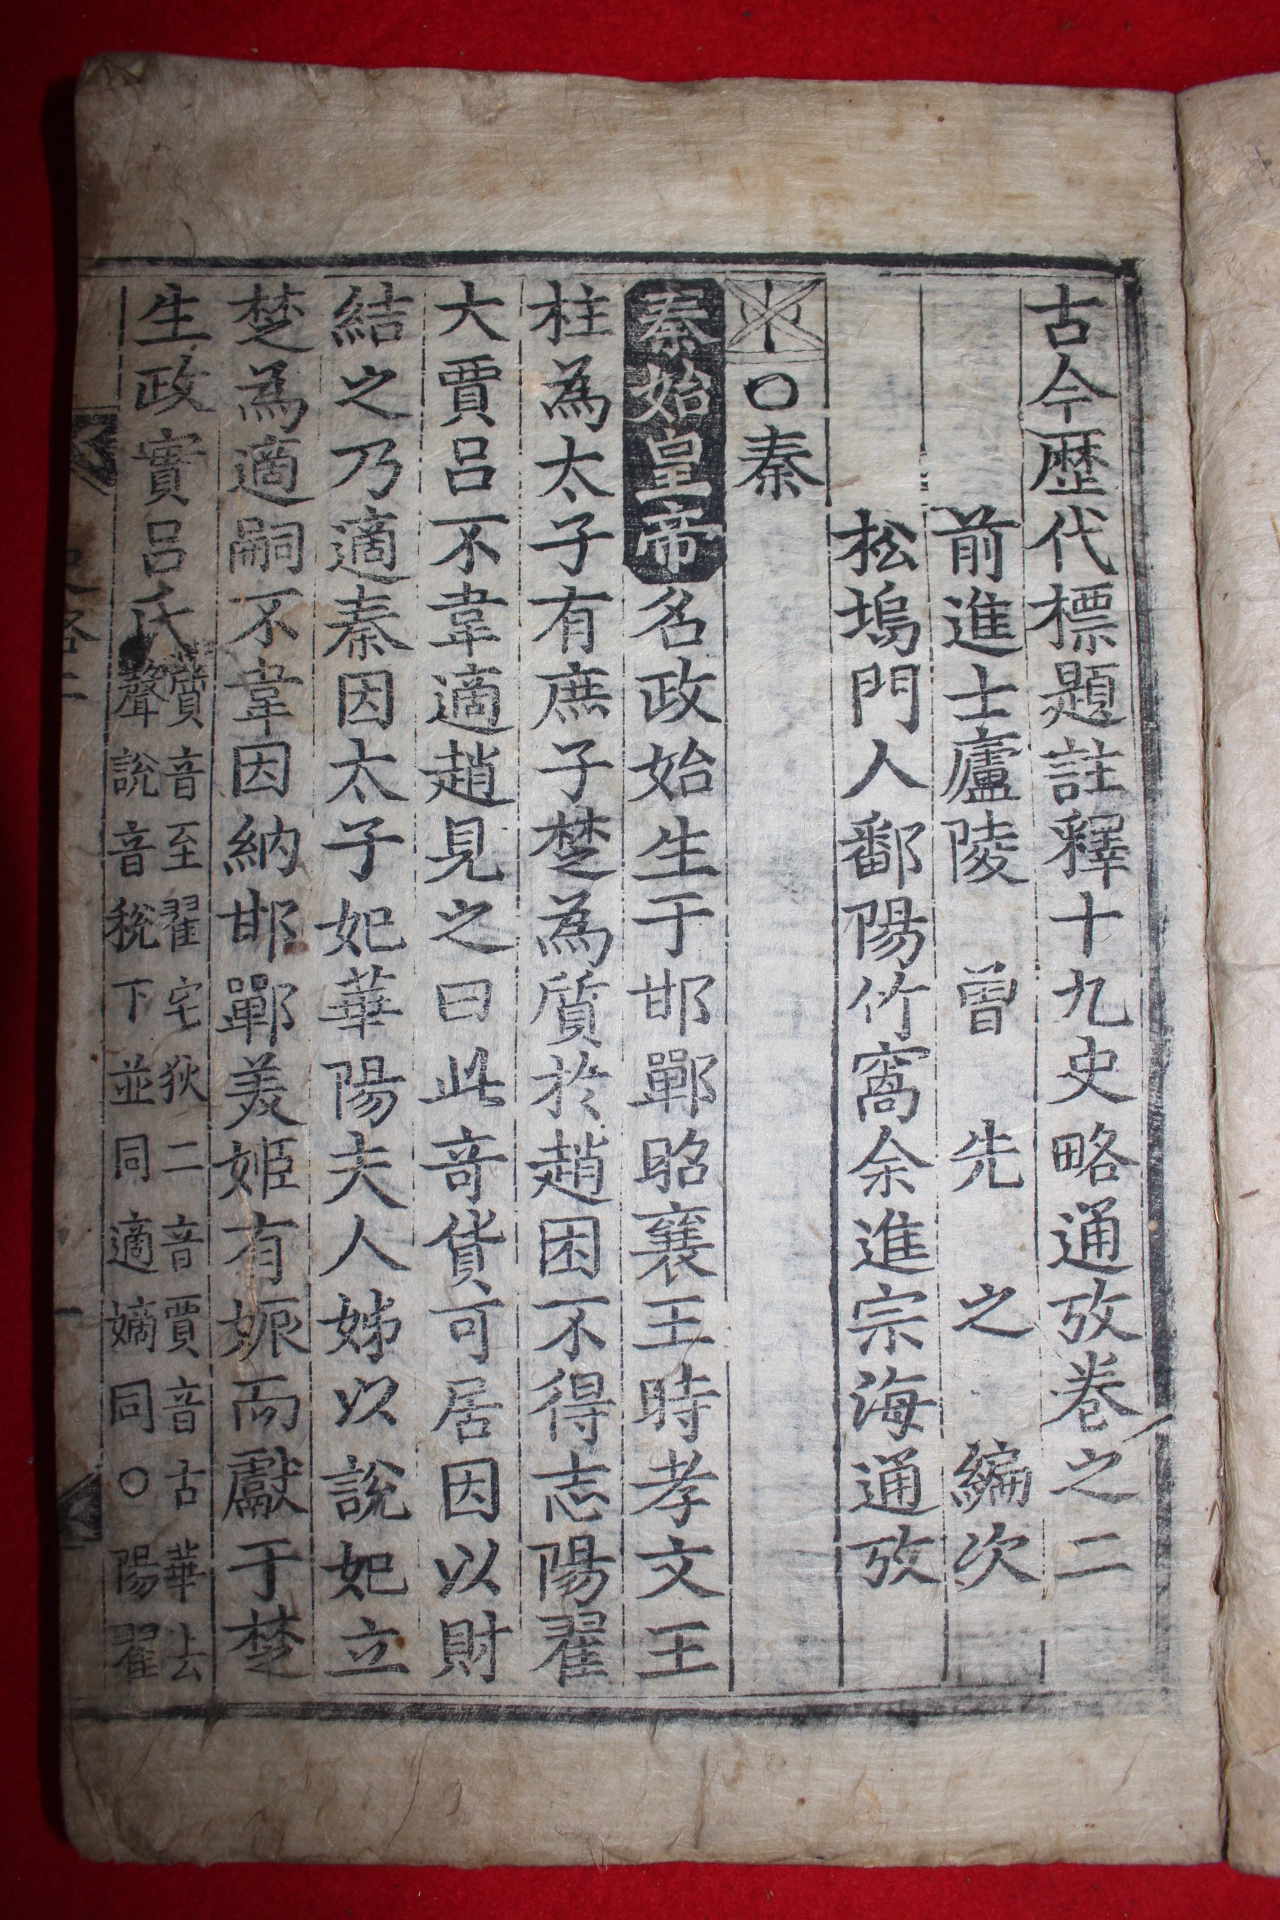 古今歴代標題註釋十九史略通攷卷之二
前進士廬陵曾先之編次
松塢門人鄱陽竹窩余進宗海通攷
○秦
秦始皇帝名政始生于邯鄲昭襄王時孝文王
柱為太子有庶子楚為質於趙困不得志陽翟
大賈呂不韋適趙見之曰此竒貨可居因以財
結之乃適秦因太子妃華陽夫人姊以說妃立
楚為適嗣不韋因納邯鄲美姬有娠而獻于楚
生政實呂氏
質音至翟宅狄二音賈音古華去
聲說音稅下並同適嫡同○陽翟
史略二
一